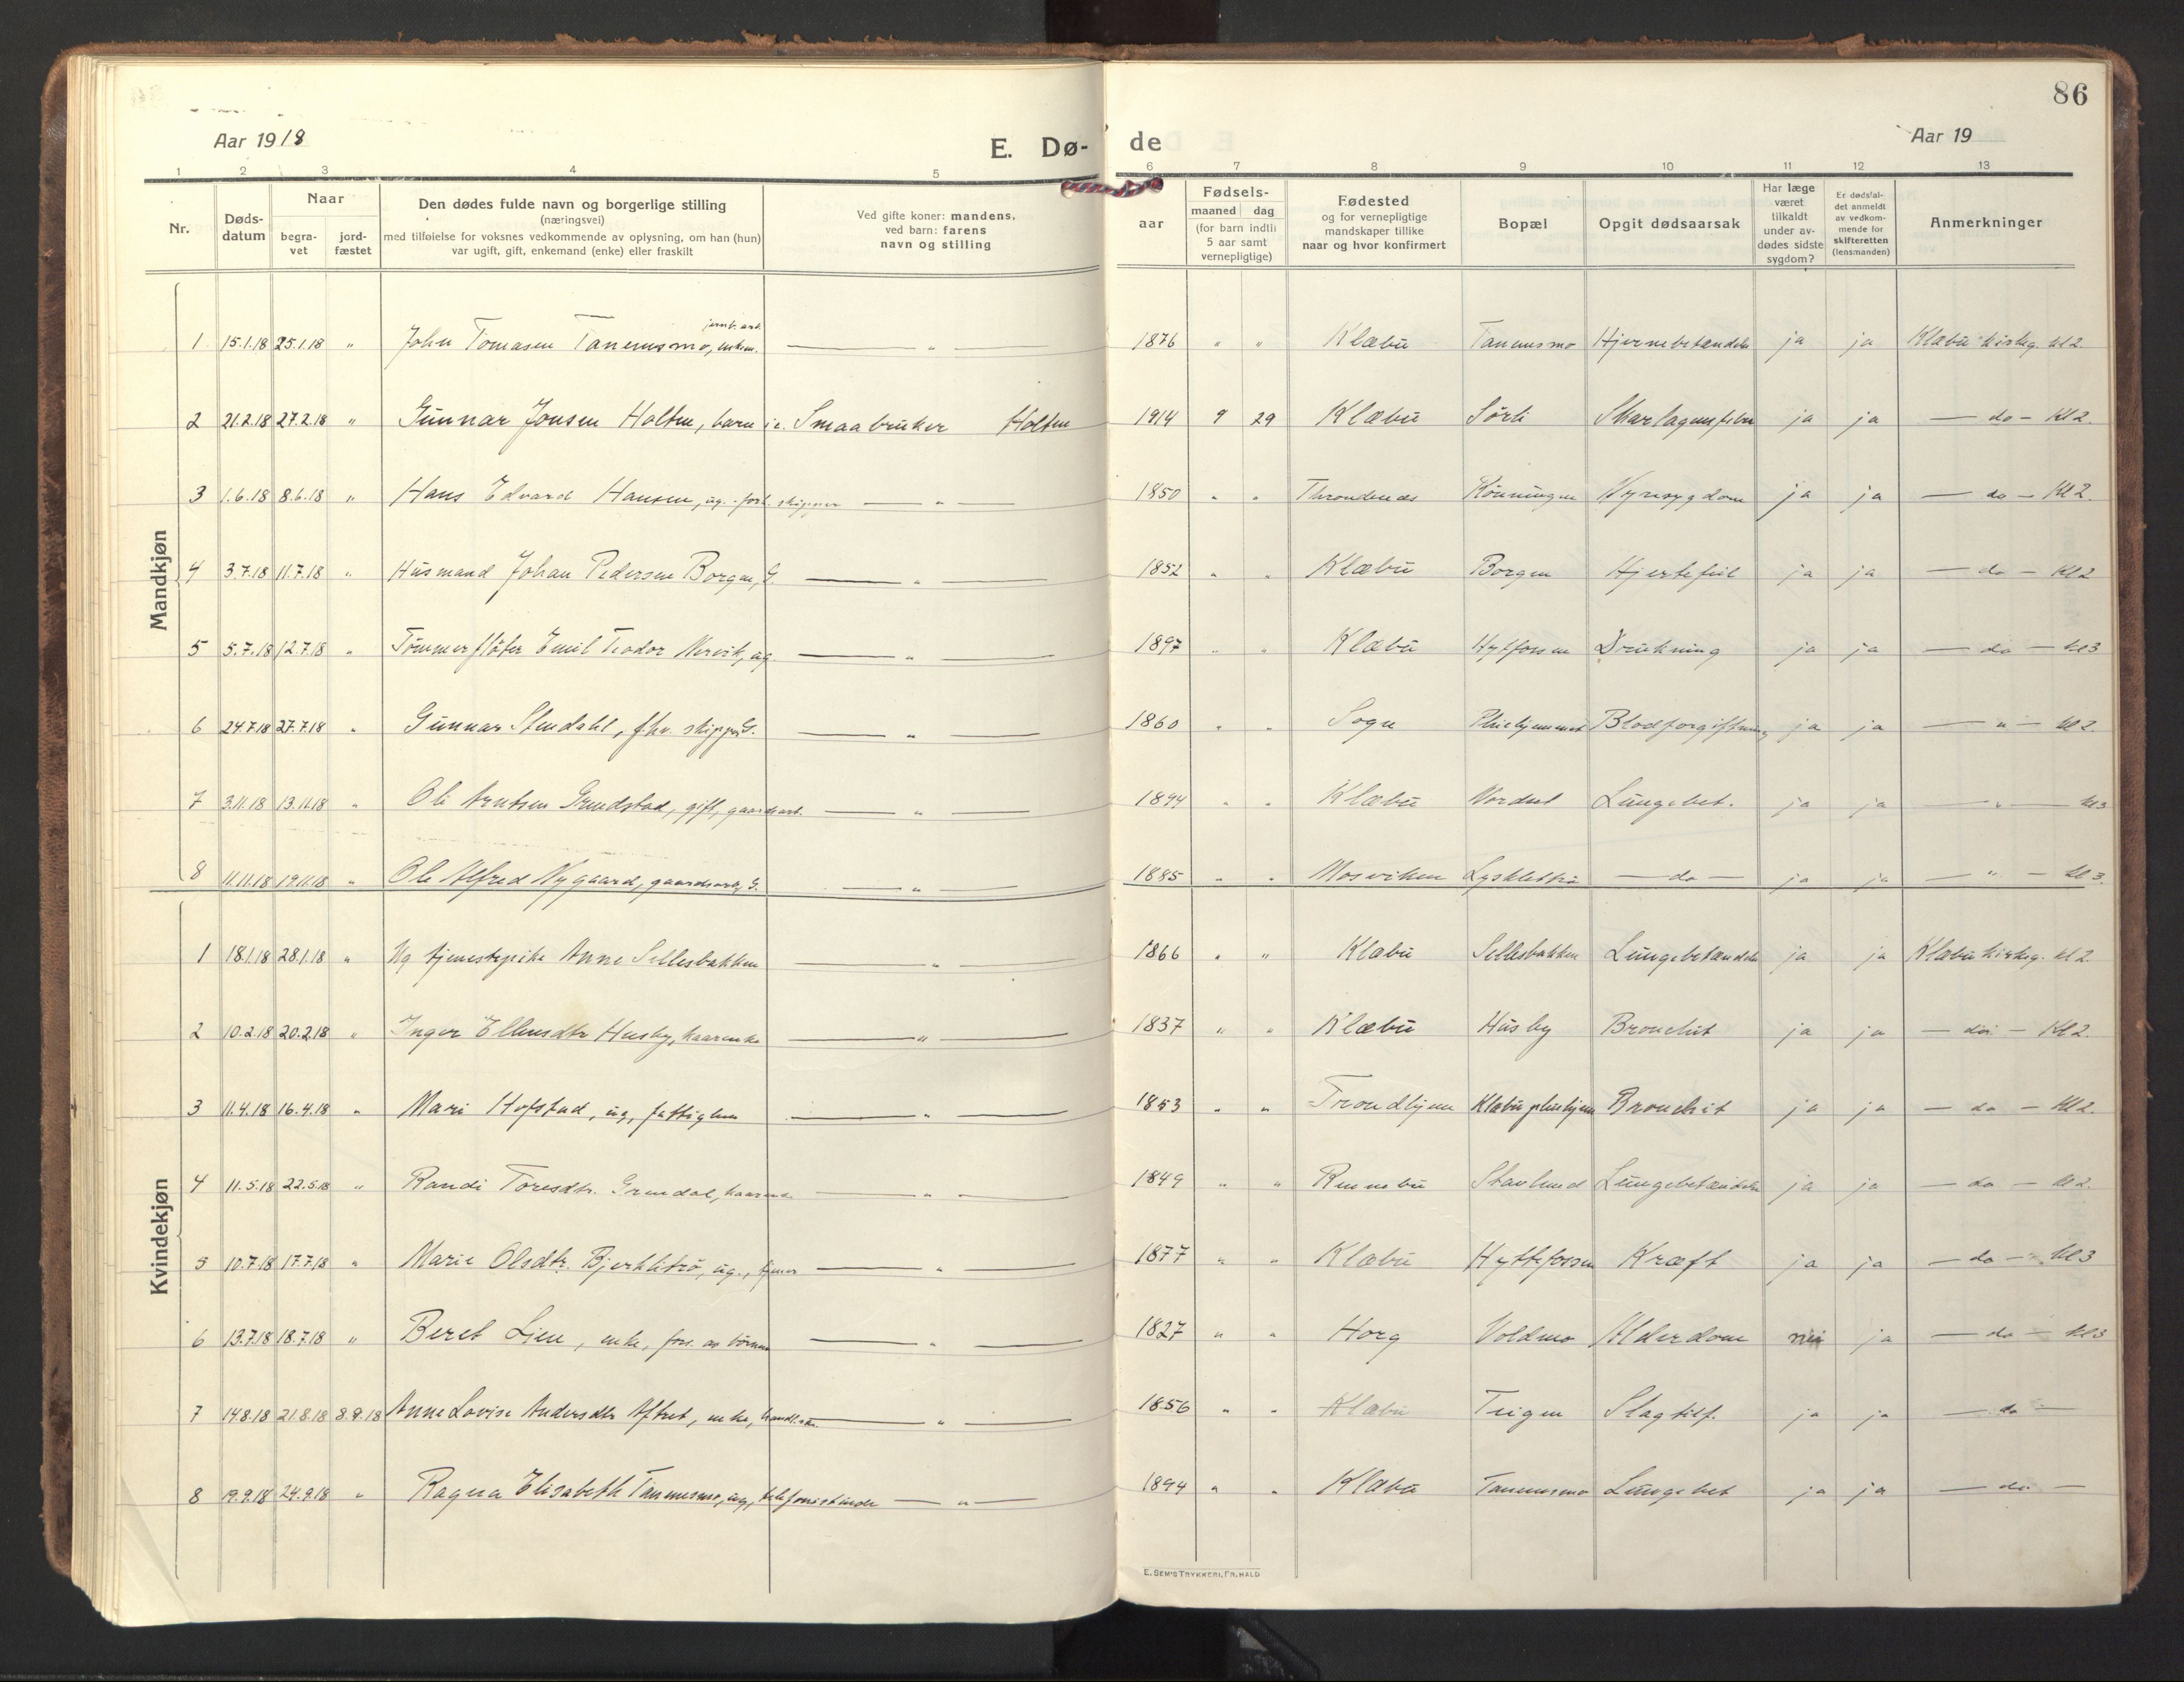 86
Aar 1918
E. Dø-
de
Aar 19
1 2 3 4 5 6 7 8 9 10 11 12 13
Nr.
Døds-
datum
Naar
begra-
vet
jord-
fæstet
Den dødes fulde navn og borgerlige stilling
(næringsvei)
med tilføielse for voksnes vedkommende av oplysning, om han (hun)
var ugift, gift, enkemand (enke) eller fraskilt
Ved gifte koner: mandens,
ved barn: farens
navn og stilling
aar
Fødsels-
maaned dag
(for barn indtil
5 aar samt
vernepligtige)
Fødested
og for vernepligtige
mandskaper tillike
naar og hvor konfirmert
Bopæl
Opgit dødsaarsak
Har læge
været
tilkaldt
under av-
dødes sidste
sygdom?
Er dødsfal-
det anmeldt
av vedkom-
mende for
skifteretten
(lensmanden)
Anmerkninger
Mandkjøn
jernb. arb.
1 15.1.18 25.1.18 " John Tomasen Tanemsmo, enkem. — " — 1876 " " Klæbu Tanemsmo Hjernebetændelse ja ja Klæbu kirkeg. kl 2.
2 21.2.18 27.2.18 " Gunnar Jonsen Holten, barn i e. Smaabruker Holten 1914 9 29 Klæbu Sørli Skarlagensfeber ja ja — do — Kl 2.
3 1.6.18 8.6.18 " Hans Edvard Hansen, ug. forh. skipper — " — 1850 " " Throndenæs Rønningen Nyresygdom ja ja — do — Kl 2.
4 3.7.18 11.7.18 " Husmand Johan Pedersen Borgen, G. — " — 1852 " " Klæbu Borgen Hjertefeil ja ja — do — Kl 2
5 5.7.18 12.7.18 " Tømmerfløter Emil Teodor Nervik, ug. — " — 1897 " " Klæbu Hytfossen Drukning ja ja — do — kl 3
6 24.7.18 27.7.18 " Gunnar Stendahl, fhv. skipper G. — " — 1860 " " Sogn Pleiehjemmet Blodforgiftning ja ja — " — kl 2.
7 3.11.18 13.11.18 " Ole Arntsen Grendstad, gift, gaardsarb. — " — 1894 " " Klæbu Nordset Lungebet. ja ja — " — kl 3
8 11.11.18 19.11.18 " Ole Alfred Nygaard, gaardsarb, G. — " — 1885 " " Mosviken Lyskletta — do — ja ja — " — kl 3.
Kvindekjøn
1 18.1.18 28.1.18 " Ug tjenestepike Anne Sellesbakken — " — 1866 " " Klæbu Sellesbakken Lungebetændelse ja ja Klæbu kirkeg. kl 2.
2 10.2.18 20.2.18 " Inger Ellensdtr Husby, kaarenke — " — 1837 " " Klæbu Husby Bronchit ja ja — do — Kl 2.
3 11.4.18 16.4.18 " Mari Hofstad, ug, fattiglem — " — 1853 " " Trondhjem Klæbu pleiehjem Bronchit ja ja — do — Kl 2.
4 11.5.18 22.5.18 " Randi Toresdtr. Grendal, kaarenke — " — 1849 " " Rennebu Stavlund Lungebetændelse ja ja — do — Kl 2.
5 10.7.18 17.7.18 " Marie Olsdtr. Bjerklitrø, ug., tjener — " — 1877 " " Klæbu Hyttefossen Kræft ja ja — do — kl 3
6 13.7.18 18.7.18 " Beret Lien, enke, fors. av børnene — " — 1827 " " Horg Voldmo Alderdom nei ja — do — kl 3
7 14.8.18 21.8.18 8.9.18 Anne Lovise Andersdtr Aftret, enke, — " — 1856 " " Klæbu Teigen Slagtilf. ja ja — do —
8 19.9.18 24.9.18 " Ragna Elisabeth Tanemsmo, ug, telefonistinde — " — 1894 " " Klæbu Tanemsmo Lungebet ja ja — do —
E. SEM'S TRYKKERI, FR.HALD